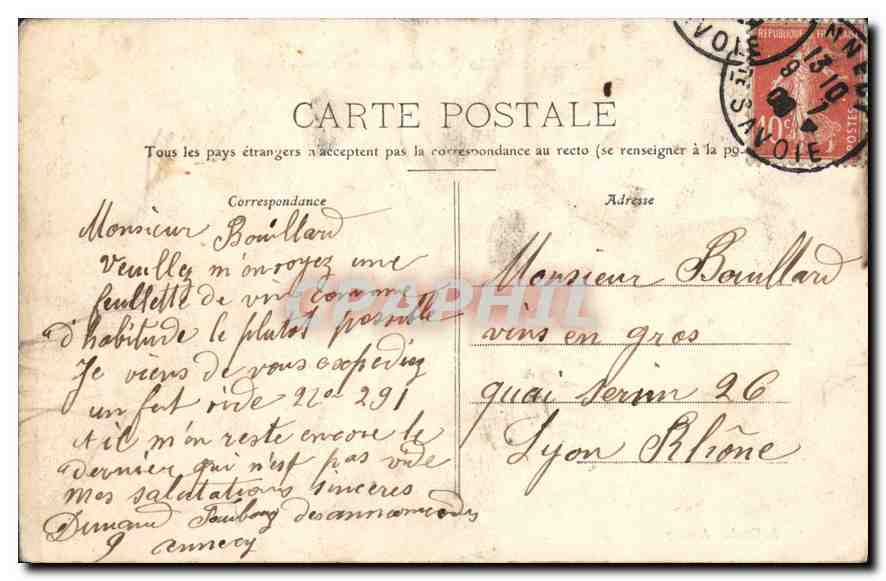 CARTE POSTALE
Tous les pays étrangers n'acceptent pas la correspondance au recto (se renseigner à la po
Correspondance
Adresse
Monsieur Bouillard
veuillez m'envoyez une
feuillette de vin comme
d'habitude le plutot possible
Je viens de vous expediez
un fut vide No 291
et il m'en reste encore le
dernier qui n'est pas vide
Mes salutations sinceres
Dunand Faubourg des annonciades
9 annecy
Monsieur Bouillard
vins en gros
quai serin 26
Lyon Rhône
REPUBLIQUE FRANÇAISE
10c
POSTES
ANNECY
13-10
8 - 7
09
SAVOIE
SAVOIE
CPAPHIL